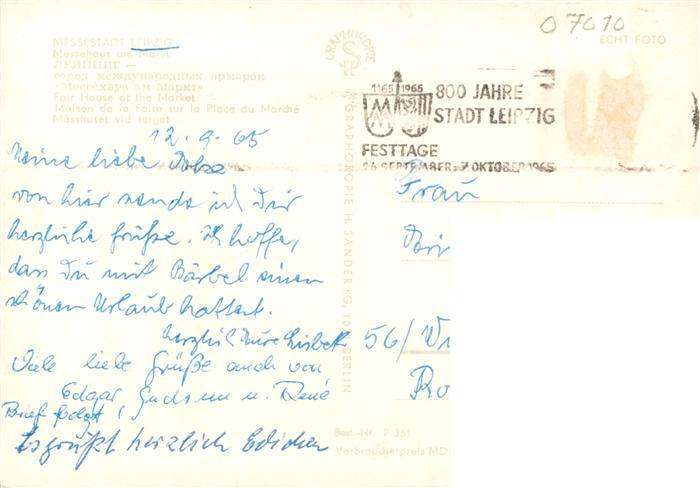 07010
MESSESTADT LEIPZIG
Messehaus am Markt
ЛЕЙПЦИГ —
город международных ярмарок
«Мессехауз ам Маркт»
Fair House at the Market
Maison de la Foire sur la Place du Marché
Mässhuset vid torget
GRAPHOKOPIE
ECHT FOTO
1165 1965
800 JAHRE
STADT LEIPZIG
FESTTAGE
26.SEPTEMBER-7.OKTOBER 1965
GRAPHOKOPIE H. SANDER KG, BERLIN
12.9.65
Meine liebe
von hier sende ich Dir
herzliche Grüße. Ich hoffe,
dass Du mit Bärbel einen
schönen Urlaub hattest.
Herzlich Eure Lisbet
Viele liebe Grüße auch von
Edgar, u. René
Brief folgt!
Es grüßt herzlich
Frau
56/Wu
Best.-Nr. P 361
Verbraucherpreis MD